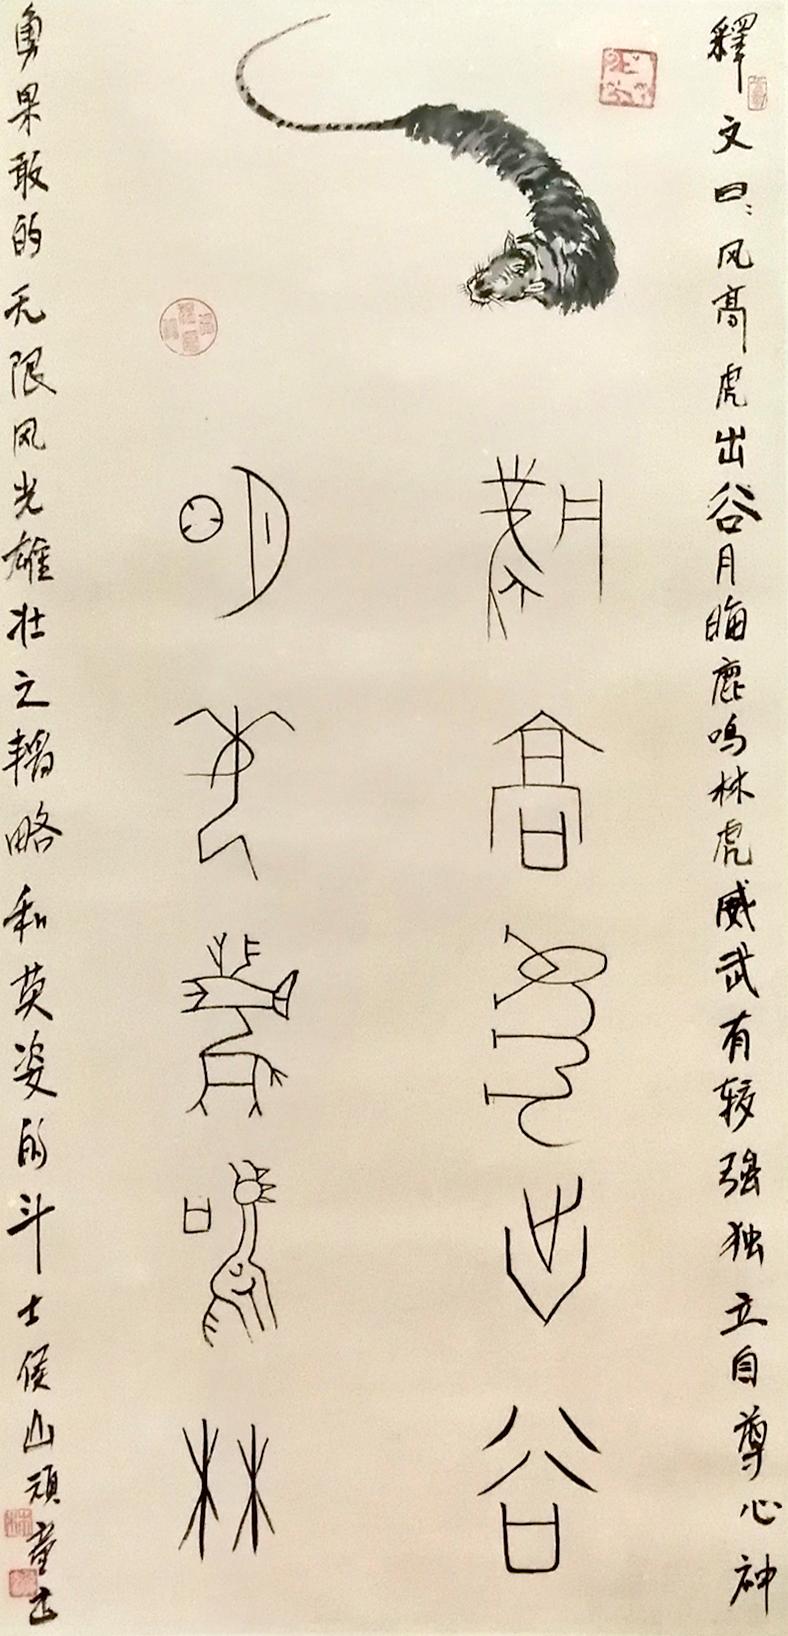 釋文曰：风高虎出谷月晦鹿鸣林虎威武有较强独立自尊心神
風高虎出谷
月晦鹿鳴林
勇果敢的无限风光雄壮之韬略和英姿的斗士侯山顽童书